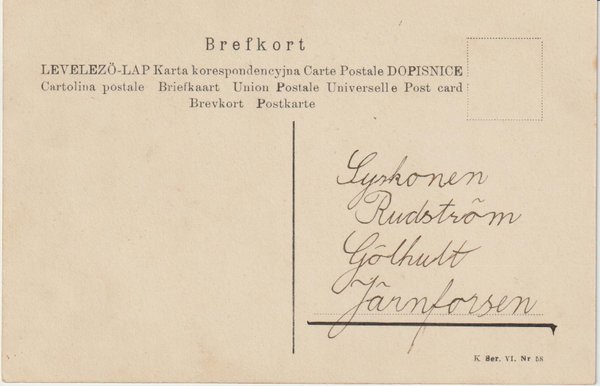 Brefkort
LEVELEZÖ-LAP Karta korespondencyjna Carte Postale DOPISNICE
Cartolina postale Briefkaart Union Postale Universelle Post card
Brevkort Postkarte
Syskonen
Rudström
Gölhult
Järnforsen
K Ser. VI. Nr 58